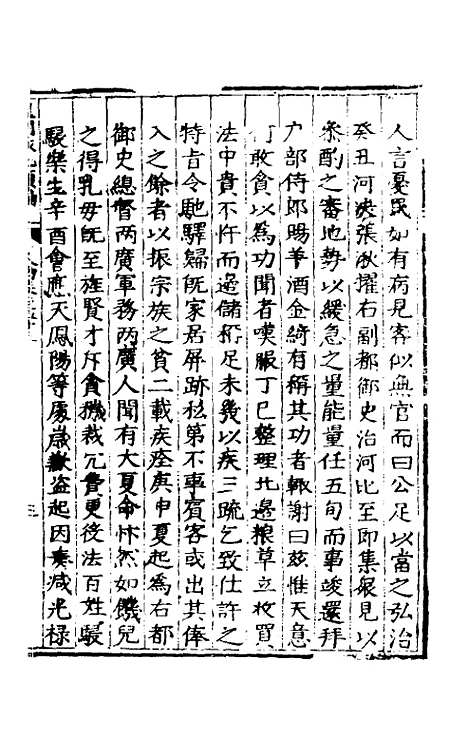 人言憂民如有病見客似無官而曰公足以當之弘治
癸丑河決張秋擢右副都御史治河比至即集眾見以
叅酌之審地勢以緩急之量能量任五旬而事竣還拜
户部侍郎賜羊酒金綺有稱其功者輒謝曰兹惟天意
何敢貪以為功聞者嘆服丁巳整理北邊粮草立收買
法中貴不忤而邊儲稍足未幾以疾三疏乞致仕許之
特旨令馳驛歸既家居屏跡私第不事賓客或出其俸
入之餘者以振宗族之貧二載疾痊庚申夏起為右都
御史總督兩廣軍務兩廣人聞有大夏命怀然如饑兒
之得乳毋既至旌賢才斥貪殘裁冗費更後法百姓駸
駸樂生辛酉會應天鳳陽等處歲歉盗起因奏减光禄
三